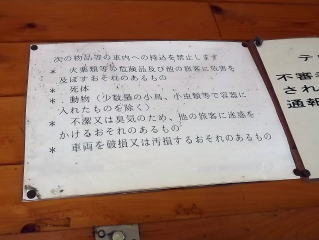 次の物品等の車内への持込を禁止します
* 火薬類等の危険品及び他の旅客に危害を
及ぼすおそれのあるもの
* 死体
* 動物（少数量の小鳥、小虫類等で容器に
入れたものを除く）
* 不潔又は臭気のため、他の旅客に迷惑を
かけるおそれのあるもの
* 車両を破損又は汚損するおそれのあるもの
テ
不審
され
通報